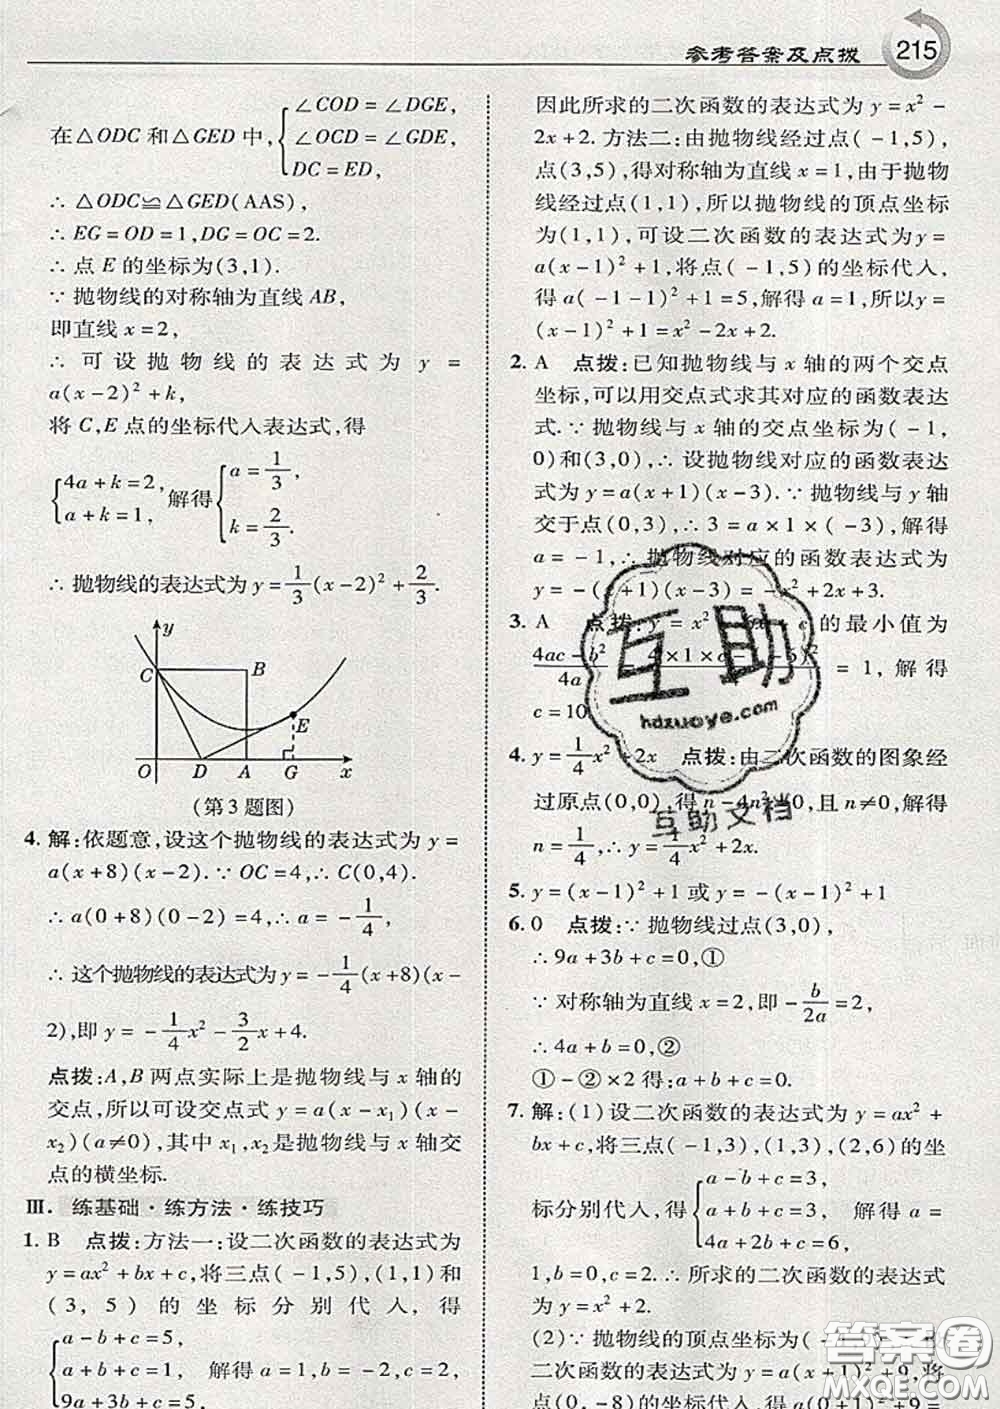 参考答案及点拨 215
在△ODC 和△GED 中,
∠COD = ∠DGE,
∠OCD = ∠GDE,
DC = ED,
∴ △ODC≌△GED(AAS),
∴ EG = OD = 1, DG = OC = 2.
∴ 点 E 的坐标为(3,1).
∵ 抛物线的对称轴为直线 AB,
即直线 x = 2,
∴ 可设抛物线的表达式为 y =
a(x-2)² + k,
将 C,E 点的坐标代入表达式,得
{4a + k = 2, a + k = 1, 解得 {a = 1/3, k = 2/3.
∴ 抛物线的表达式为 y = 1/3(x-2)² + 2/3.
y
C B
E
O D A G x
(第3题图)
4. 解:依题意,设这个抛物线的表达式为 y =
a(x+8)(x-2). ∵ OC = 4, ∴ C(0,4).
∴ a(0+8)(0-2) = 4, ∴ a = -1/4.
∴ 这个抛物线的表达式为 y = -1/4(x+8)(x-
2),即 y = -1/4x² - 3/2x + 4.
点拨:A,B 两点实际上是抛物线与 x 轴的
交点,所以可设交点式 y = a(x - x₁)(x -
x₂)(a≠0),其中 x₁,x₂是抛物线与 x 轴交
点的横坐标.
Ⅲ. 练基础·练方法·练技巧
1. B 点拨:方法一:设二次函数的表达式为
y = ax² + bx + c,将三点(-1,5),(1,1)和
(3,5)的坐标分别代入,得
a - b + c = 5,
a + b + c = 1, 解得 a = 1, b = -2, c = 2,
9a + 3b + c = 5,
因此所求的二次函数的表达式为 y = x² -
2x + 2. 方法二:由抛物线经过点(-1,5),
点(3,5),得对称轴为直线 x = 1,由于抛物
线经过点(1,1),所以抛物线的顶点坐标
为(1,1),可设二次函数的表达式为 y =
a(x-1)² + 1,将点(-1,5)的坐标代入,
得 a(-1-1)² + 1 = 5,解得 a = 1,所以 y =
(x-1)² + 1 = x² - 2x + 2.
2. A 点拨:已知抛物线与 x 轴的两个交点
坐标,可以用交点式求其对应的函数表达
式. ∵ 抛物线与 x 轴的交点坐标为(-1,
0)和(3,0),∴ 设抛物线对应的函数表达
式为 y = a(x+1)(x-3). ∵ 抛物线与 y 轴
交于点(0,3),∴ 3 = a×1×(-3),解得
a = -1,∴ 抛物线对应的函数表达式为
y = -(x+1)(x-3) = -x² + 2x + 3.
3. A 点拨:y = x² - 6x + c 的最小值为
(4ac - b²)/4a = (4×1×c - (-6)²)/ = 1, 解得
c = 10
4. y = 1/4x² + 2x 点拨:由二次函数的图象经
过原点(0,0),得 n - 4n² = 0,且 n≠0,解得
n = 1/4, ∴ y = 1/4x² + 2x.
5. y = (x-1)² + 1 或 y = -(x-1)² + 1
6. 0 点拨:∵ 抛物线过点(3,0),
∴ 9a + 3b + c = 0,①
∵ 对称轴为直线 x = 2,即 -b/2a = 2,
∴ 4a + b = 0,②
① - ②×2 得:a + b + c = 0.
7. 解:(1)设二次函数的表达式为 y = ax² +
bx + c,将三点(-1,3),(1,3),(2,6)的坐
标分别代入,得
a - b + c = 3,
a + b + c = 3, 解得 a =
4a + 2b + c = 6,
1, b = 0, c = 2. ∴ 所求的二次函数的表达式
为 y = x² + 2.
(2)∵ 抛物线的顶点坐标为(-
二次函数的表达式为 y = a(x+1)² + 9,将
点(0,-8)的坐标代入,得
互助
hdzuoye.com
互助文档
答案圈
MXQE.COM